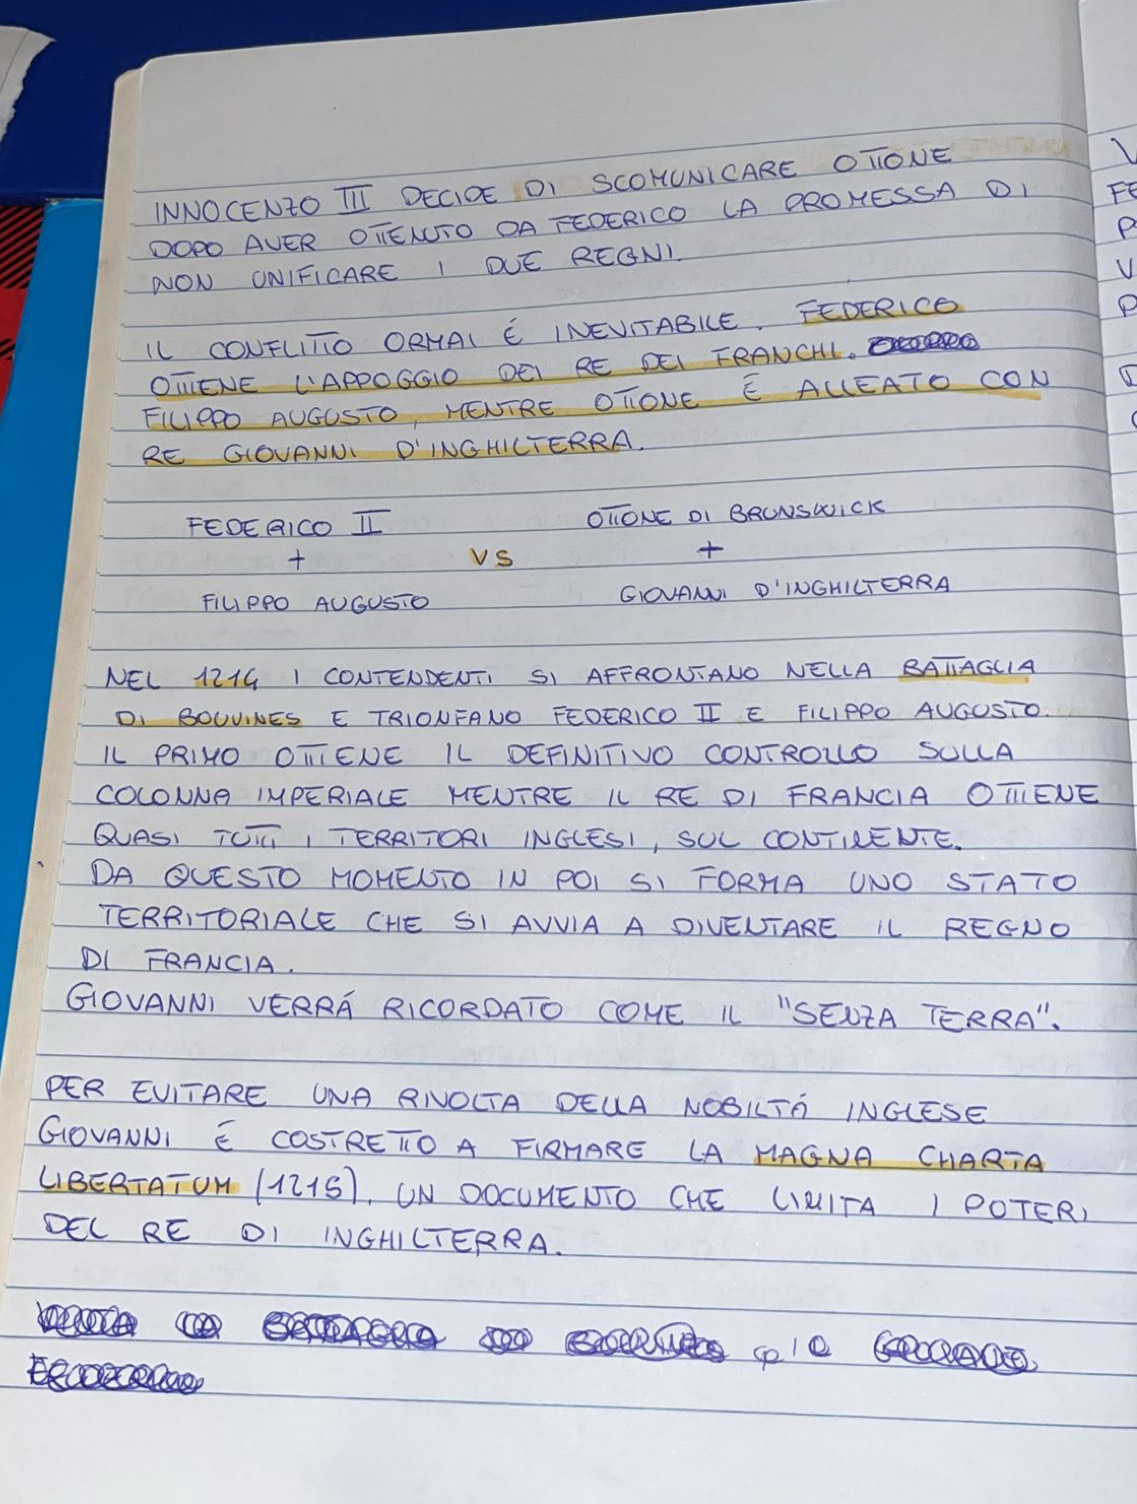 INNOCENZO III DECIDE DI SCOMUNICARE OTTONE
DOPO AVER OTTENUTO DA FEDERICO LA PROMESSA DI
NON UNIFICARE I DUE REGNI.
IL CONFLITTO ORMAI É INEVITABILE. FEDERICO
OTTIENE L'APPOGGIO DEI RE DEI FRANCHI.
FILIPPO AUGUSTO, MENTRE OTTONE É ALLEATO CON
RE GIOVANNI D'INGHILTERRA.
FEDERICO II OTTONE DI BRUNSWICK
+ VS +
FILIPPO AUGUSTO GIOVANNI D'INGHILTERRA
NEL 1214 I CONTENDENTI SI AFFRONTANO NELLA BATTAGLIA
DI BOUVINES E TRIONFANO FEDERICO II E FILIPPO AUGUSTO.
IL PRIMO OTTIENE IL DEFINITIVO CONTROLLO SULLA
COLONNA IMPERIALE MENTRE IL RE DI FRANCIA OTTIENE
QUASI TUTTI I TERRITORI INGLESI, SUL CONTINENTE.
DA QUESTO MOMENTO IN POI SI FORMA UNO STATO
TERRITORIALE CHE SI AVVIA A DIVENTARE IL REGNO
DI FRANCIA.
GIOVANNI VERRÁ RICORDATO COME IL "SENZA TERRA".
PER EVITARE UNA RIVOLTA DELLA NOBILTÁ INGLESE
GIOVANNI É COSTRETTO A FIRMARE LA MAGNA CHARTA
LIBERTATUM (1215), UN DOCUMENTO CHE LIMITA I POTERI
DEL RE DI INGHILTERRA.